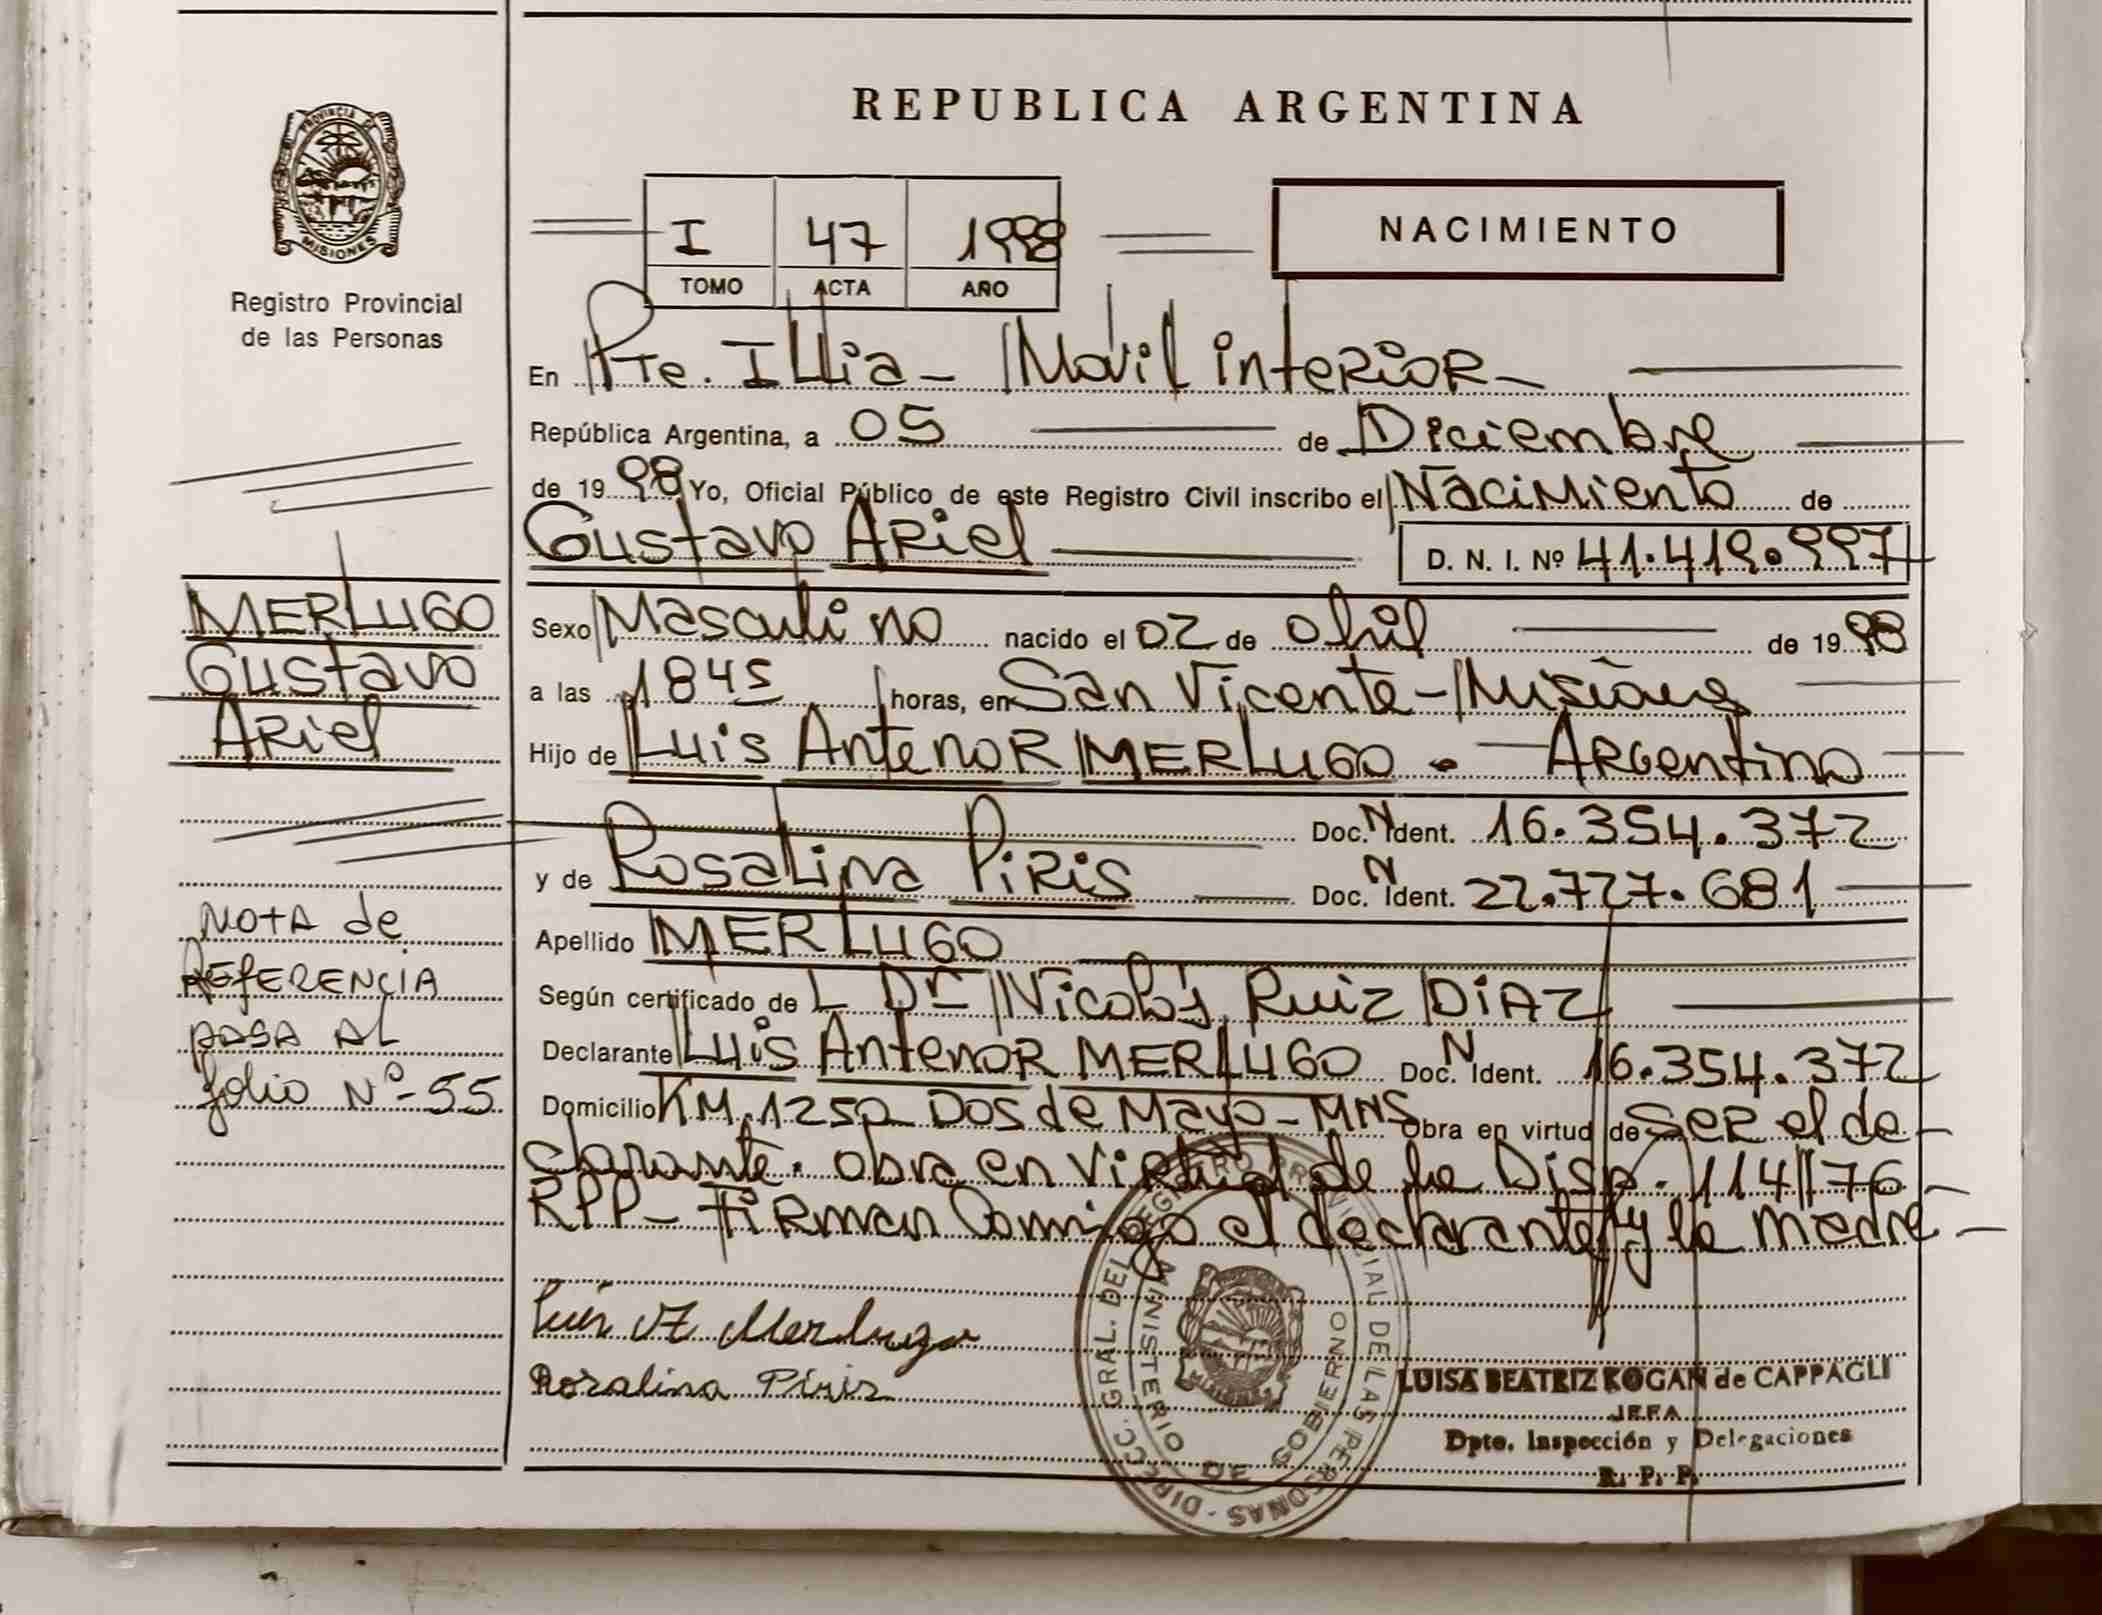 REPUBLICA ARGENTINA
PROVINCIA DE
MISIONES
Registro Provincial
de las Personas
I 47 1998
TOMO ACTA AÑO
NACIMIENTO
En Pte. Illia - Móvil interior -
República Argentina, a 05 de Diciembre
de 1998 Yo, Oficial Público de este Registro Civil inscribo el Nacimiento de
Gustavo Ariel D. N. I. Nº 41.419.997
Sexo Masculino nacido el 02 de abril de 1998
a las 1845 horas, en San Vicente - Misiones
Hijo de Luis Antenor MERLUGO . - Argentino
Doc. N Ident. 16.354.372
y de Rosalina Piris Doc. N Ident. 22.727.681
Apellido MERLUGO
Según certificado de L Dr Nicolás Ruiz DIAZ
Declarante Luis Antenor MERLUGO Doc. N Ident. 16.354.372
Domicilio KM. 1250 Dos de Mayo - MNS Obra en virtud de ser el de-
clarante. obra en virtud de la Disp. 114/76
RPP - Firman Conmigo el declarante y la madre -
Luis A Merlugo
Rosalina Piris
MERLUGO
Gustavo
Ariel
NOTA de
REFERENCIA
PASA AL
folio Nº - 55
DIRECC. GRAL. DEL REGISTRO PROVINCIAL DE LAS PERSONAS
MINISTERIO DE GOBIERNO
LUISA BEATRIZ KOGAN de CAPPAGLI
JEFA
Dpto. Inspección y Delegaciones
R. P. P.